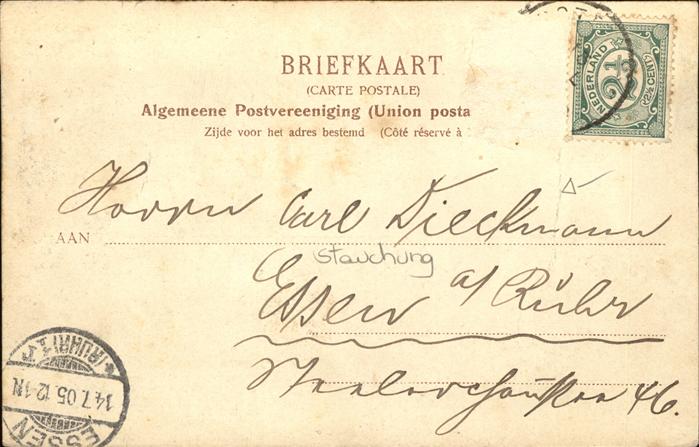 BRIEFKAART
(CARTE POSTALE)
Algemeene Postvereeniging (Union posta
Zijde voor het adres bestemd (Côté réservé à
NEDERLAND
2½
(2½ CENT)
Herrn Carl Dieckmann
AAN
stauchung
Essen a/ Ruhr
46.
ESSEN
14.7.05.12-1N
(RUHR)